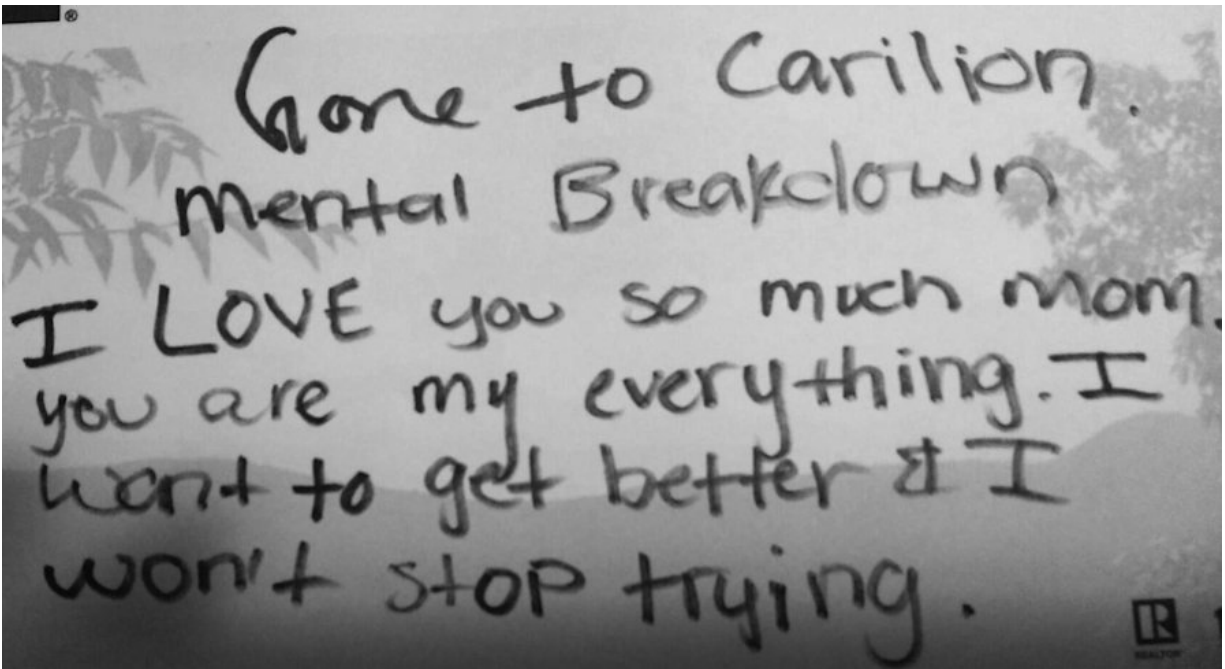 ®
Gone to Carilion.
Mental Breakdown
I LOVE you so much mom.
you are my everything. I
want to get better & I
won't stop trying.
R
REALTOR